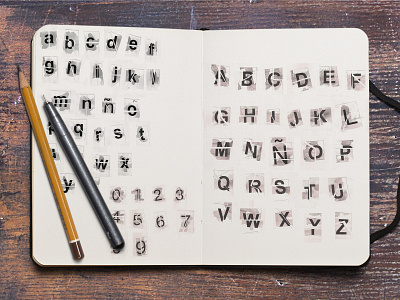 a b c d e f
g h i j k l
m n ñ o
q r s t
w x
y
0 1 2 3
4 5 6 7
8 9
A B C D E F
G H I J K L
M N Ñ O P
Q R S T U
V W X Y Z